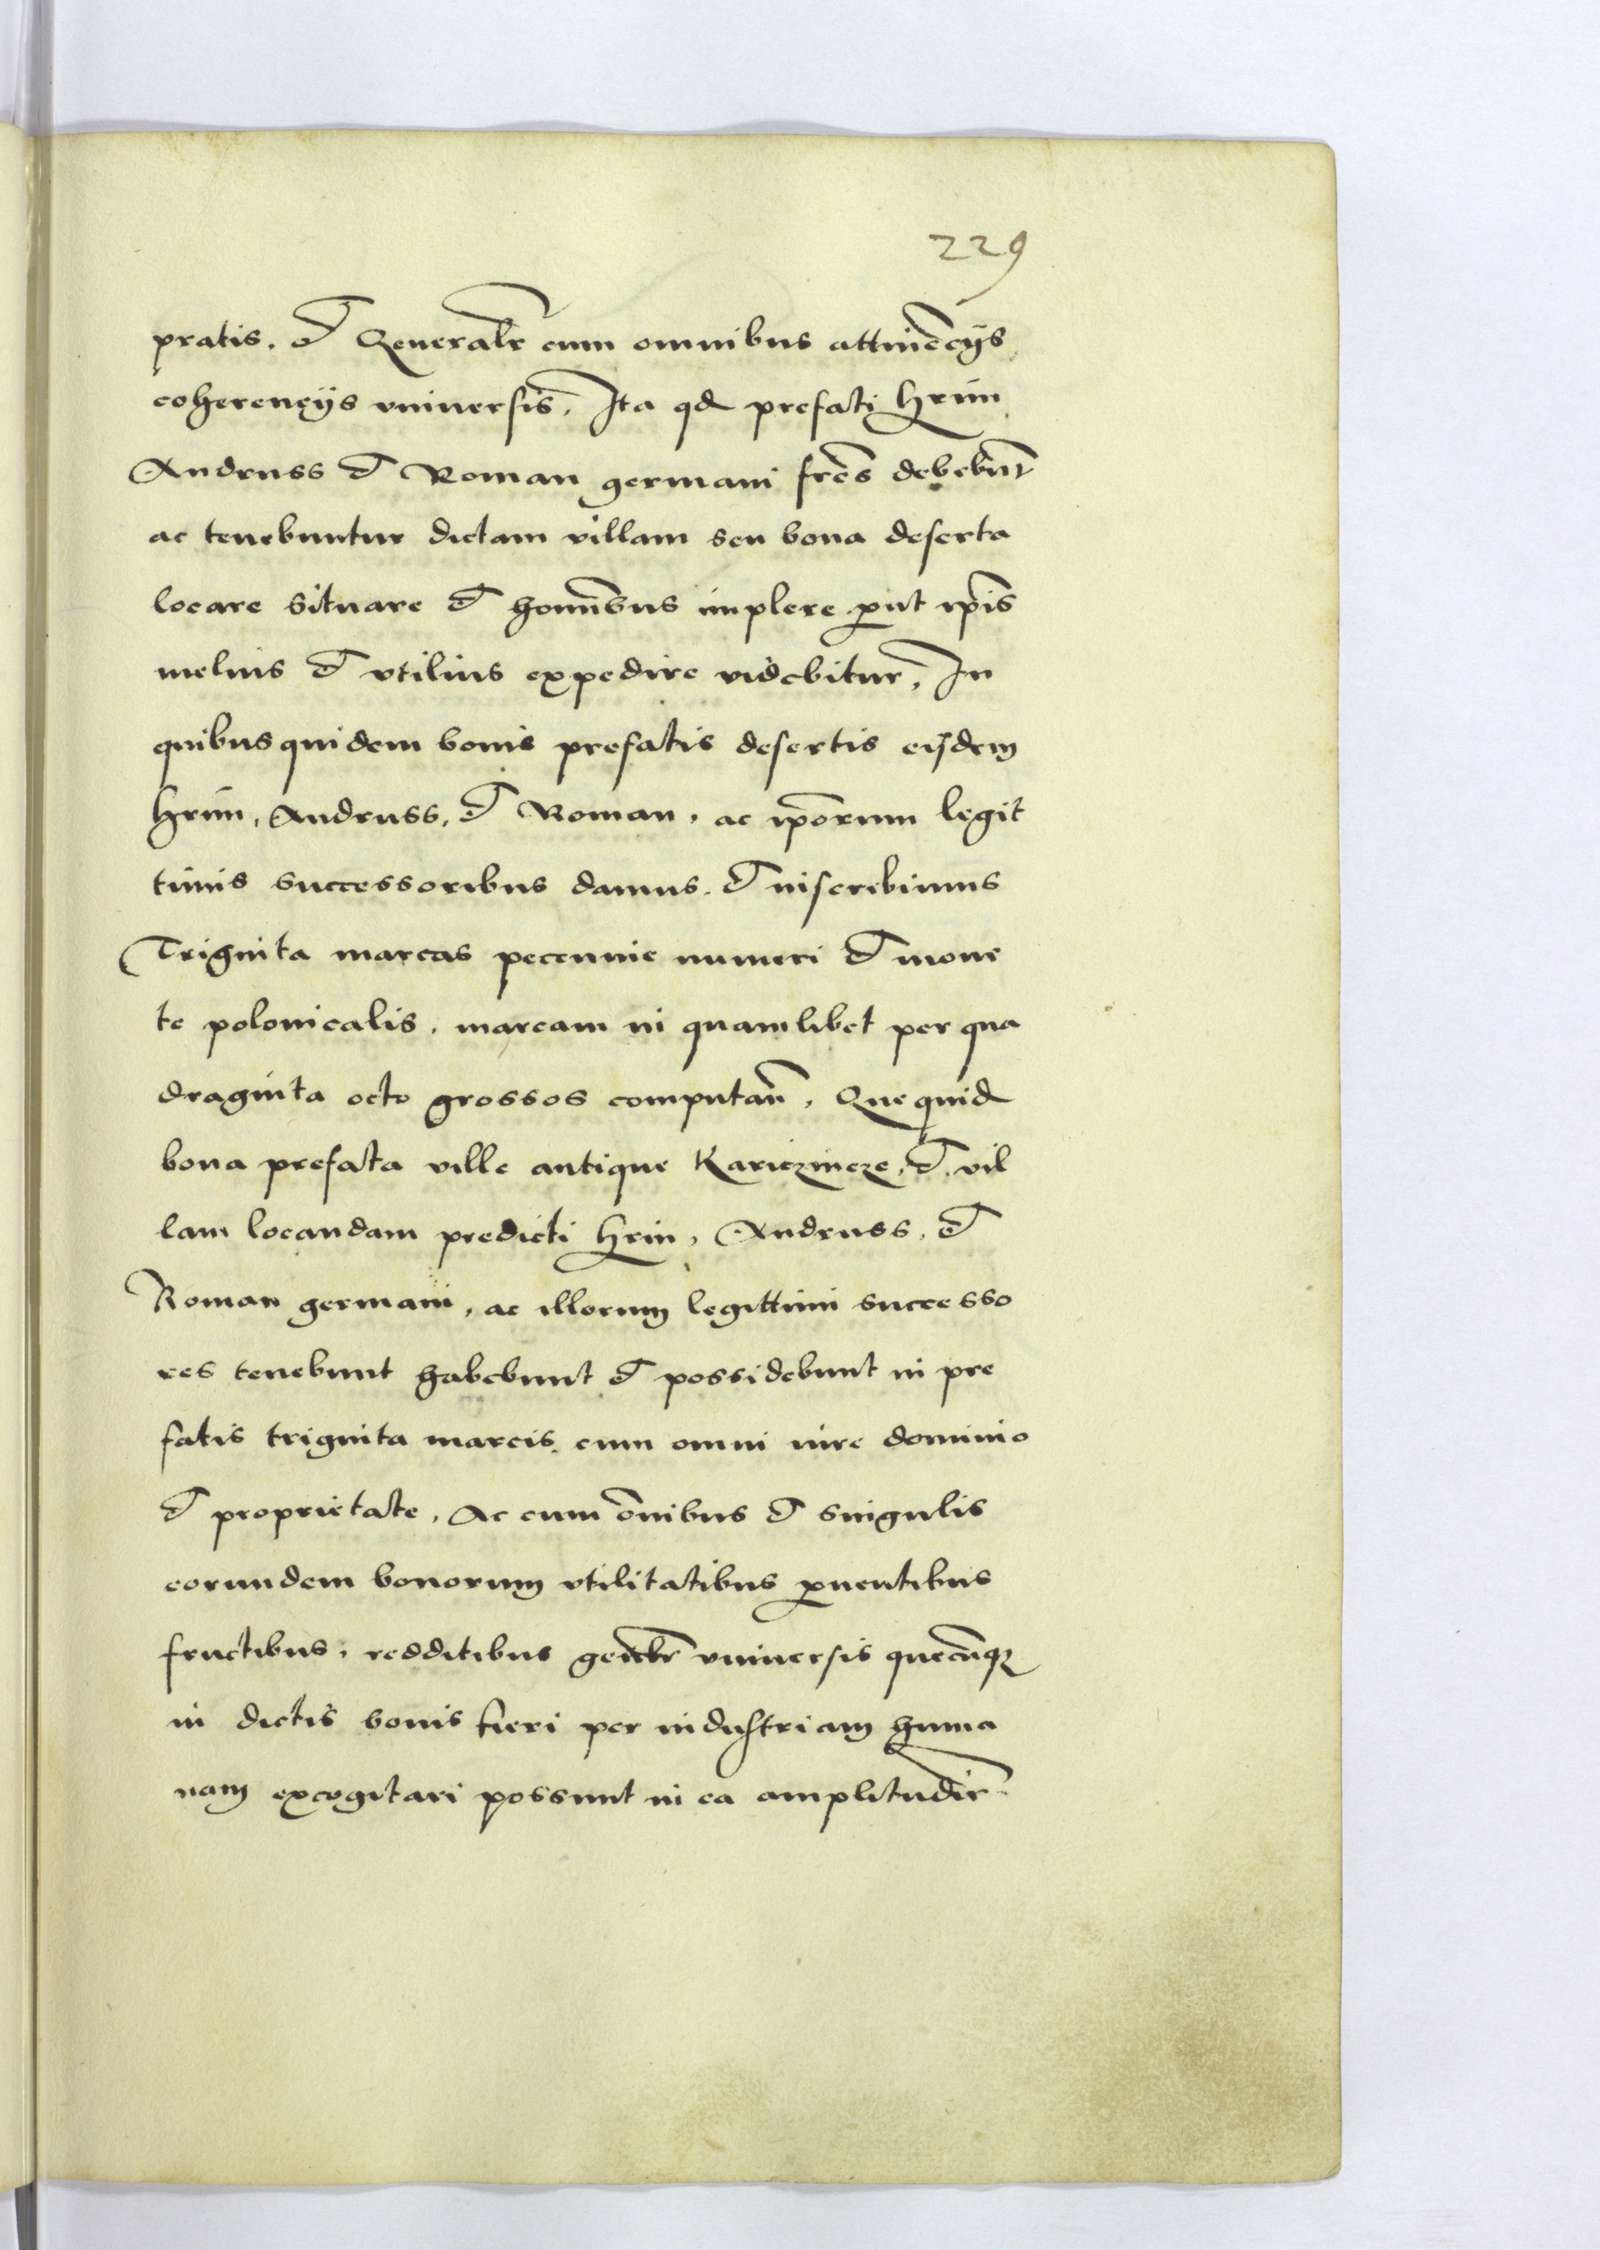 229
pratis. et Generalr̄ cum omnibus attinēcijs
coherencijs vniversis. Ita qd prefati Hrim
Andruss et Roman germani frēs debebūt
ac tenebuntur dictam villam seu bona deserta
locare situare et hominibus implere put ip̄is
melius et vtilius expedire videbitur. In
quibus quidem bonis prefatis desertis eisdem
Hrim, Andruss, et Roman, ac ip̄orum legit
timis successoribus damus. et inscribimus
Triginta marcas peccunie numeri et mone
te polonicalis, marcam in quamlibet per qua
draginta octo grossos computan̄, Que quid
bona prefata ville antique Kariczincze, et vil
lam locandam predicti Hrin, Andruss, et
Roman germani, ac illorum legittimi successo
res tenebunt habebunt et possidebunt in pre
fatis triginta marcis cum omni iure dominio
et proprietate, Ac cum ōnibus et singulis
eorundem bonorum vtilitatibus puentibus
fructibus, redditibus genēlr vniversis quecūq
in dictis bonis fieri per industriam huma
nam excogitari possunt in ea amplitudīe